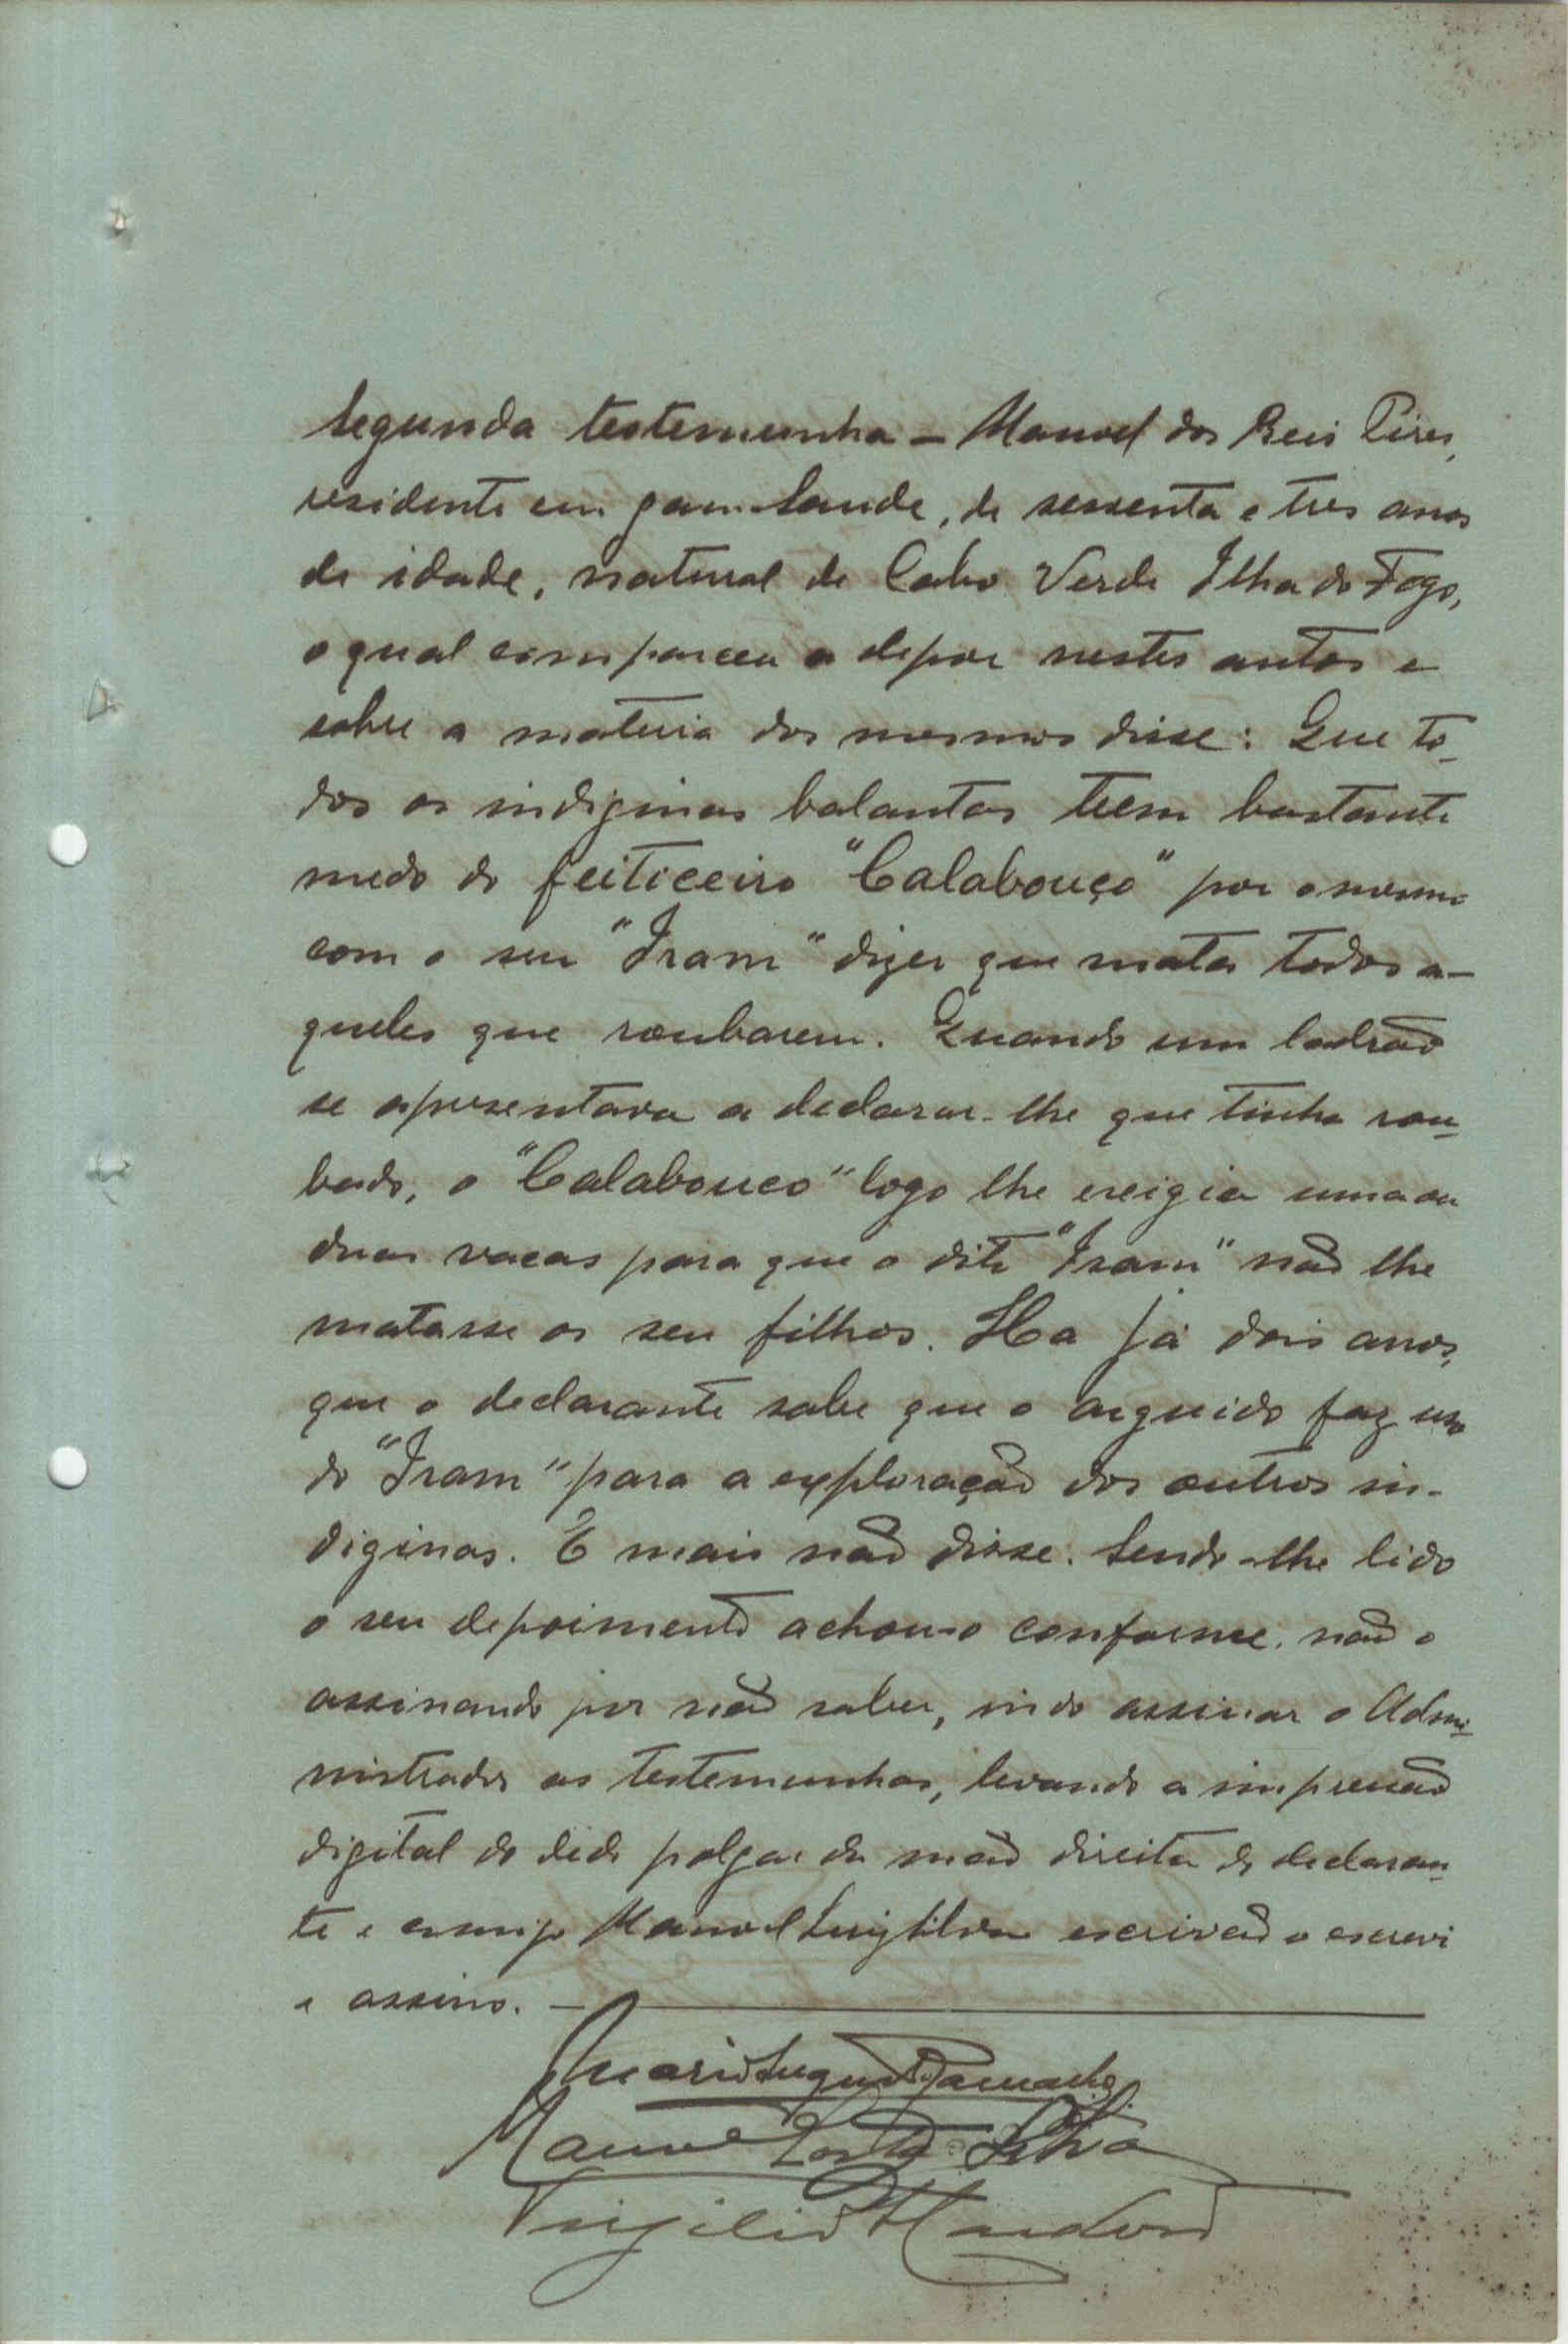 Segunda testemunha - Manoel dos Reis Pires,
residente em gam-Sande, de sessenta e tres anos
de idade, natural de Cabo Verde Ilha do Fogo,
o qual compareceu a depor nestes autos e
sobre a materia dos mesmos disse: Que to-
dos os indiginas balantas teem bastante
medo do feiticeiro "Calabouço" por o mesmo
com o seu "Iram" dizer que mata todos a-
queles que roubarem. Quando um ladrão
se apresentava a declarar-lhe que tinha rou-
bado, o "Calabouco" logo lhe exigia uma ou
duas vacas para que o dito "Iram" não lhe
matasse os seu filhos. Ha já dois anos,
que o declarante sabe que o arguido faz uso
do "Iram" para a exploração dos outros in-
diginas. E mais não disse. Sendo-lhe lido
o seu depoimento achou-o conforme, não o
assinando por não saber, indo assinar o Admi-
nistrador as testemunhas, levando a impressão
digital do dedo polgar da mão direita do declaran-
te e comigo Manoel Luiz Silva escrivão o escrevi
e assino.
Manoel Costa Silva
Virgilio